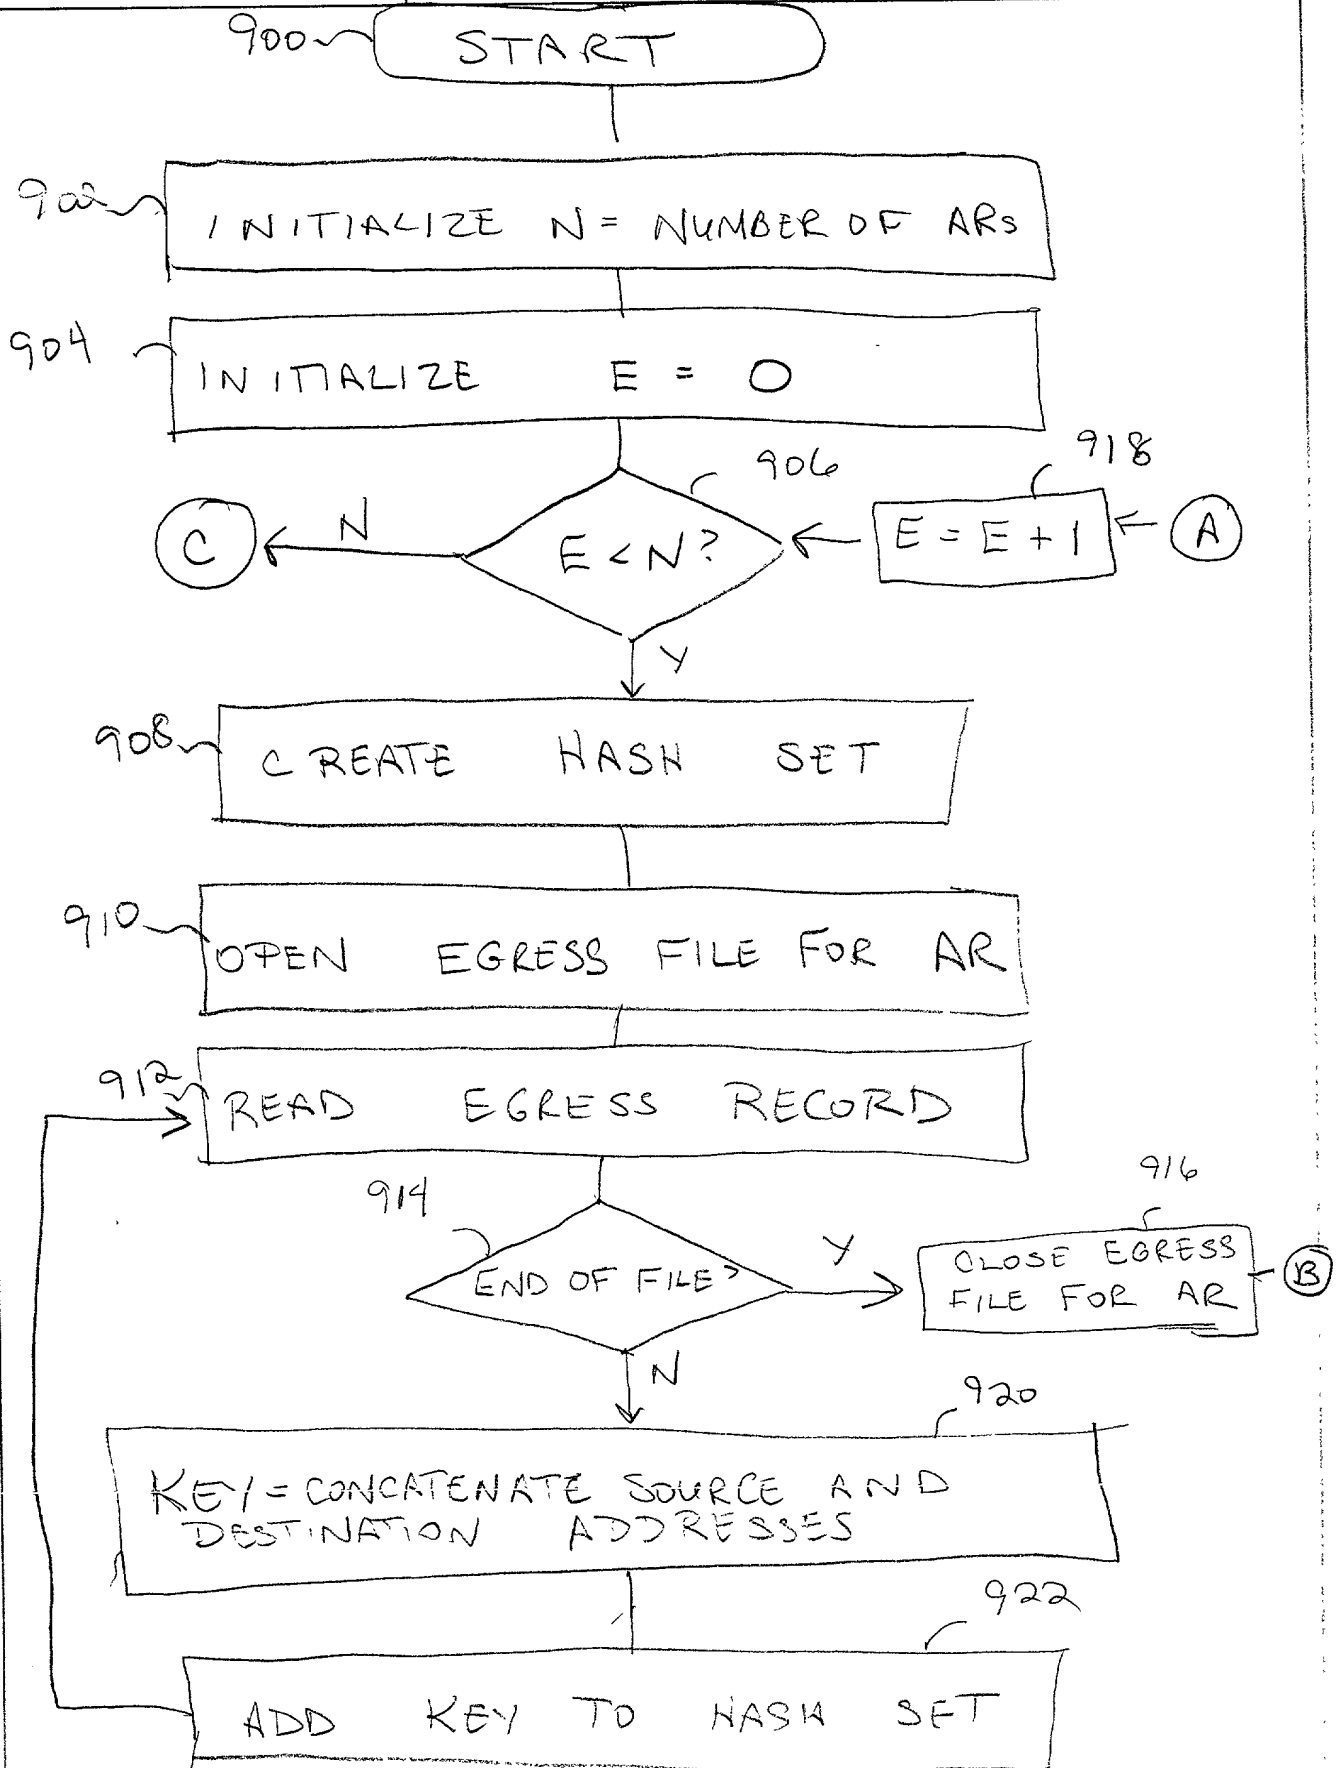 900 START
902
INITIALIZE N = NUMBER OF ARs
904
INITIALIZE E = 0
906
918
C
N
E < N?
E = E + 1
A
Y
908
CREATE HASH SET
910
OPEN EGRESS FILE FOR AR
912
READ EGRESS RECORD
914
END OF FILE?
Y
916
CLOSE EGRESS
FILE FOR AR
B
N
920
KEY = CONCATENATE SOURCE AND
DESTINATION ADDRESSES
922
ADD KEY TO HASH SET